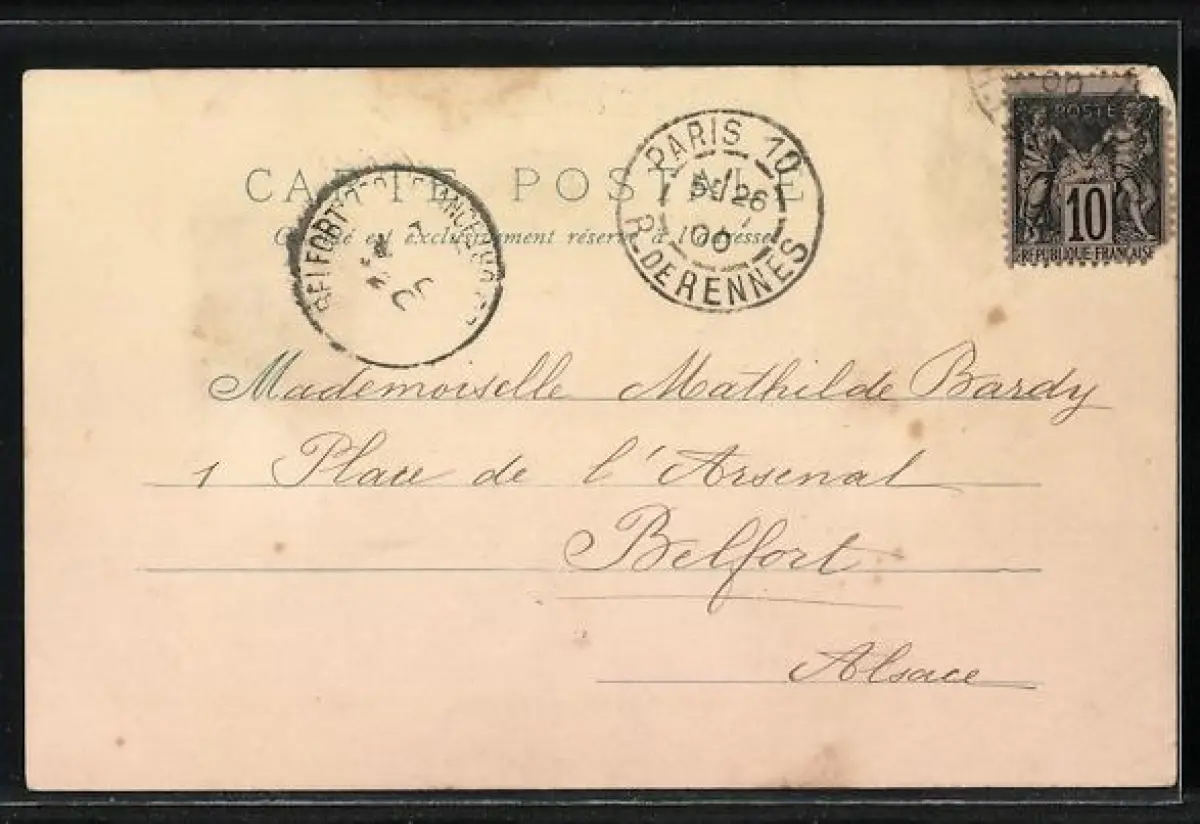 CARTE POSTALE
Ce côté est exclusivement réservé à l'adresse
PARIS 10
26
00
R. DE RENNES
BELFORT
POSTE
10
REPUBLIQUE FRANÇAISE
Mademoiselle Mathilde Bardy
1 Place de l'Arsenal
Belfort
Alsace